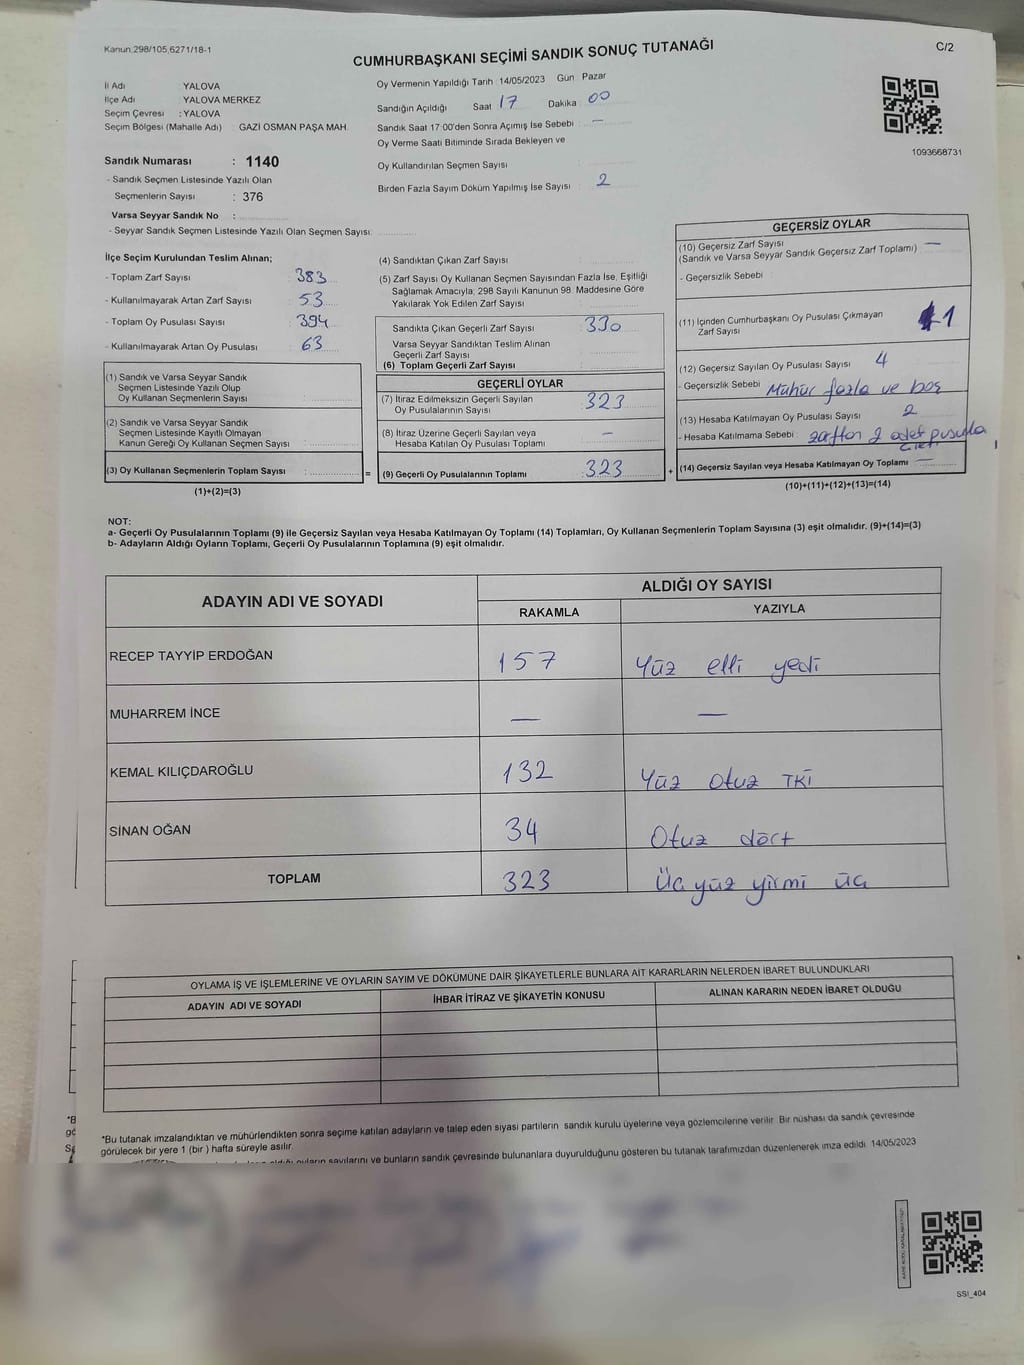 Kanun,298/105,6271/18-1
CUMHURBAŞKANI SEÇİMİ SANDIK SONUÇ TUTANAĞI
C/2
İl Adı : YALOVA
İlçe Adı : YALOVA MERKEZ
Seçim Çevresi : YALOVA
Seçim Bölgesi (Mahalle Adı) : GAZİ OSMAN PAŞA MAH.
Sandık Numarası : 1140
- Sandık Seçmen Listesinde Yazılı Olan
Seçmenlerin Sayısı : 376
Varsa Seyyar Sandık No :
- Seyyar Sandık Seçmen Listesinde Yazılı Olan Seçmen Sayısı:
Oy Vermenin Yapıldığı Tarih : 14/05/2023 Gün : Pazar
Sandığın Açıldığı Saat 17 Dakika 00
Sandık Saat 17:00'den Sonra Açımış İse Sebebi : —
Oy Verme Saati Bitiminde Sırada Bekleyen ve
Oy Kullandırılan Seçmen Sayısı
Birden Fazla Sayım Döküm Yapılmış İse Sayısı : 2
1093668731
İlçe Seçim Kurulundan Teslim Alınan;
- Toplam Zarf Sayısı : 383
- Kullanılmayarak Artan Zarf Sayısı : 53
- Toplam Oy Pusulası Sayısı : 394
- Kullanılmayarak Artan Oy Pusulası : 63
(1) Sandık ve Varsa Seyyar Sandık
Seçmen Listesinde Yazılı Olup
Oy Kullanan Seçmenlerin Sayısı :
(2) Sandık ve Varsa Seyyar Sandık
Seçmen Listesinde Kayıtlı Olmayan
Kanun Gereği Oy Kullanan Seçmen Sayısı :
(3) Oy Kullanan Seçmenlerin Toplam Sayısı :
(1)+(2)=(3)
(4) Sandıktan Çıkan Zarf Sayısı :
(5) Zarf Sayısı Oy Kullanan Seçmen Sayısından Fazla İse, Eşitliği
Sağlamak Amacıyla; 298 Sayılı Kanunun 98. Maddesine Göre
Yakılarak Yok Edilen Zarf Sayısı :
Sandıkta Çıkan Geçerli Zarf Sayısı : 330
Varsa Seyyar Sandıktan Teslim Alınan
Geçerli Zarf Sayısı :
(6) Toplam Geçerli Zarf Sayısı :
GEÇERLİ OYLAR
(7) İtiraz Edilmeksizin Geçerli Sayılan
Oy Pusulalarının Sayısı : 323
(8) İtiraz Üzerine Geçerli Sayılan veya
Hesaba Katılan Oy Pusulası Toplamı : —
=
(9) Geçerli Oy Pusulalarının Toplamı : 323
+
GEÇERSİZ OYLAR
(10) Geçersiz Zarf Sayısı : —
(Sandık ve Varsa Seyyar Sandık Geçersiz Zarf Toplamı)
- Geçersizlik Sebebi :
(11) İçinden Cumhurbaşkanı Oy Pusulası Çıkmayan
Zarf Sayısı : 1
(12) Geçersiz Sayılan Oy Pusulası Sayısı : 4
- Geçersizlik Sebebi : Mühür fazla ve boş
(13) Hesaba Katılmayan Oy Pusulası Sayısı : 2
- Hesaba Katılmama Sebebi : zarftan 2 adet pusula
çıktı
(14) Geçersiz Sayılan veya Hesaba Katılmayan Oy Toplamı : —
(10)+(11)+(12)+(13)=(14)
NOT:
a- Geçerli Oy Pusulalarının Toplamı (9) ile Geçersiz Sayılan veya Hesaba Katılmayan Oy Toplamı (14) Toplamları, Oy Kullanan Seçmenlerin Toplam Sayısına (3) eşit olmalıdır. (9)+(14)=(3)
b- Adayların Aldığı Oyların Toplamı, Geçerli Oy Pusulalarının Toplamına (9) eşit olmalıdır.
ADAYIN ADI VE SOYADI
ALDIĞI OY SAYISI
RAKAMLA YAZIYLA
RECEP TAYYİP ERDOĞAN 157 Yüz elli yedi
MUHARREM İNCE — —
KEMAL KILIÇDAROĞLU 132 Yüz Otuz İKİ
SİNAN OĞAN 34 Otuz dört
TOPLAM 323 Üç yüz yirmi üç
OYLAMA İŞ VE İŞLEMLERİNE VE OYLARIN SAYIM VE DÖKÜMÜNE DAİR ŞİKAYETLERLE BUNLARA AİT KARARLARIN NELERDEN İBARET BULUNDUKLARI
ADAYIN ADI VE SOYADI İHBAR İTİRAZ VE ŞİKAYETİN KONUSU ALINAN KARARIN NEDEN İBARET OLDUĞU
*Bu tutanak imzalandıktan ve mühürlendikten sonra seçime katılan adayların ve talep eden siyasi partilerin sandık kurulu üyelerine veya gözlemcilerine verilir. Bir nüshası da sandık çevresinde
görülecek bir yere 1 (bir ) hafta süreyle asılır.
sayılarını ve bunların sandık çevresinde bulunanlara duyurulduğunu gösteren bu tutanak tarafımızdan düzenlenerek imza edildi. 14/05/2023
SSI_404